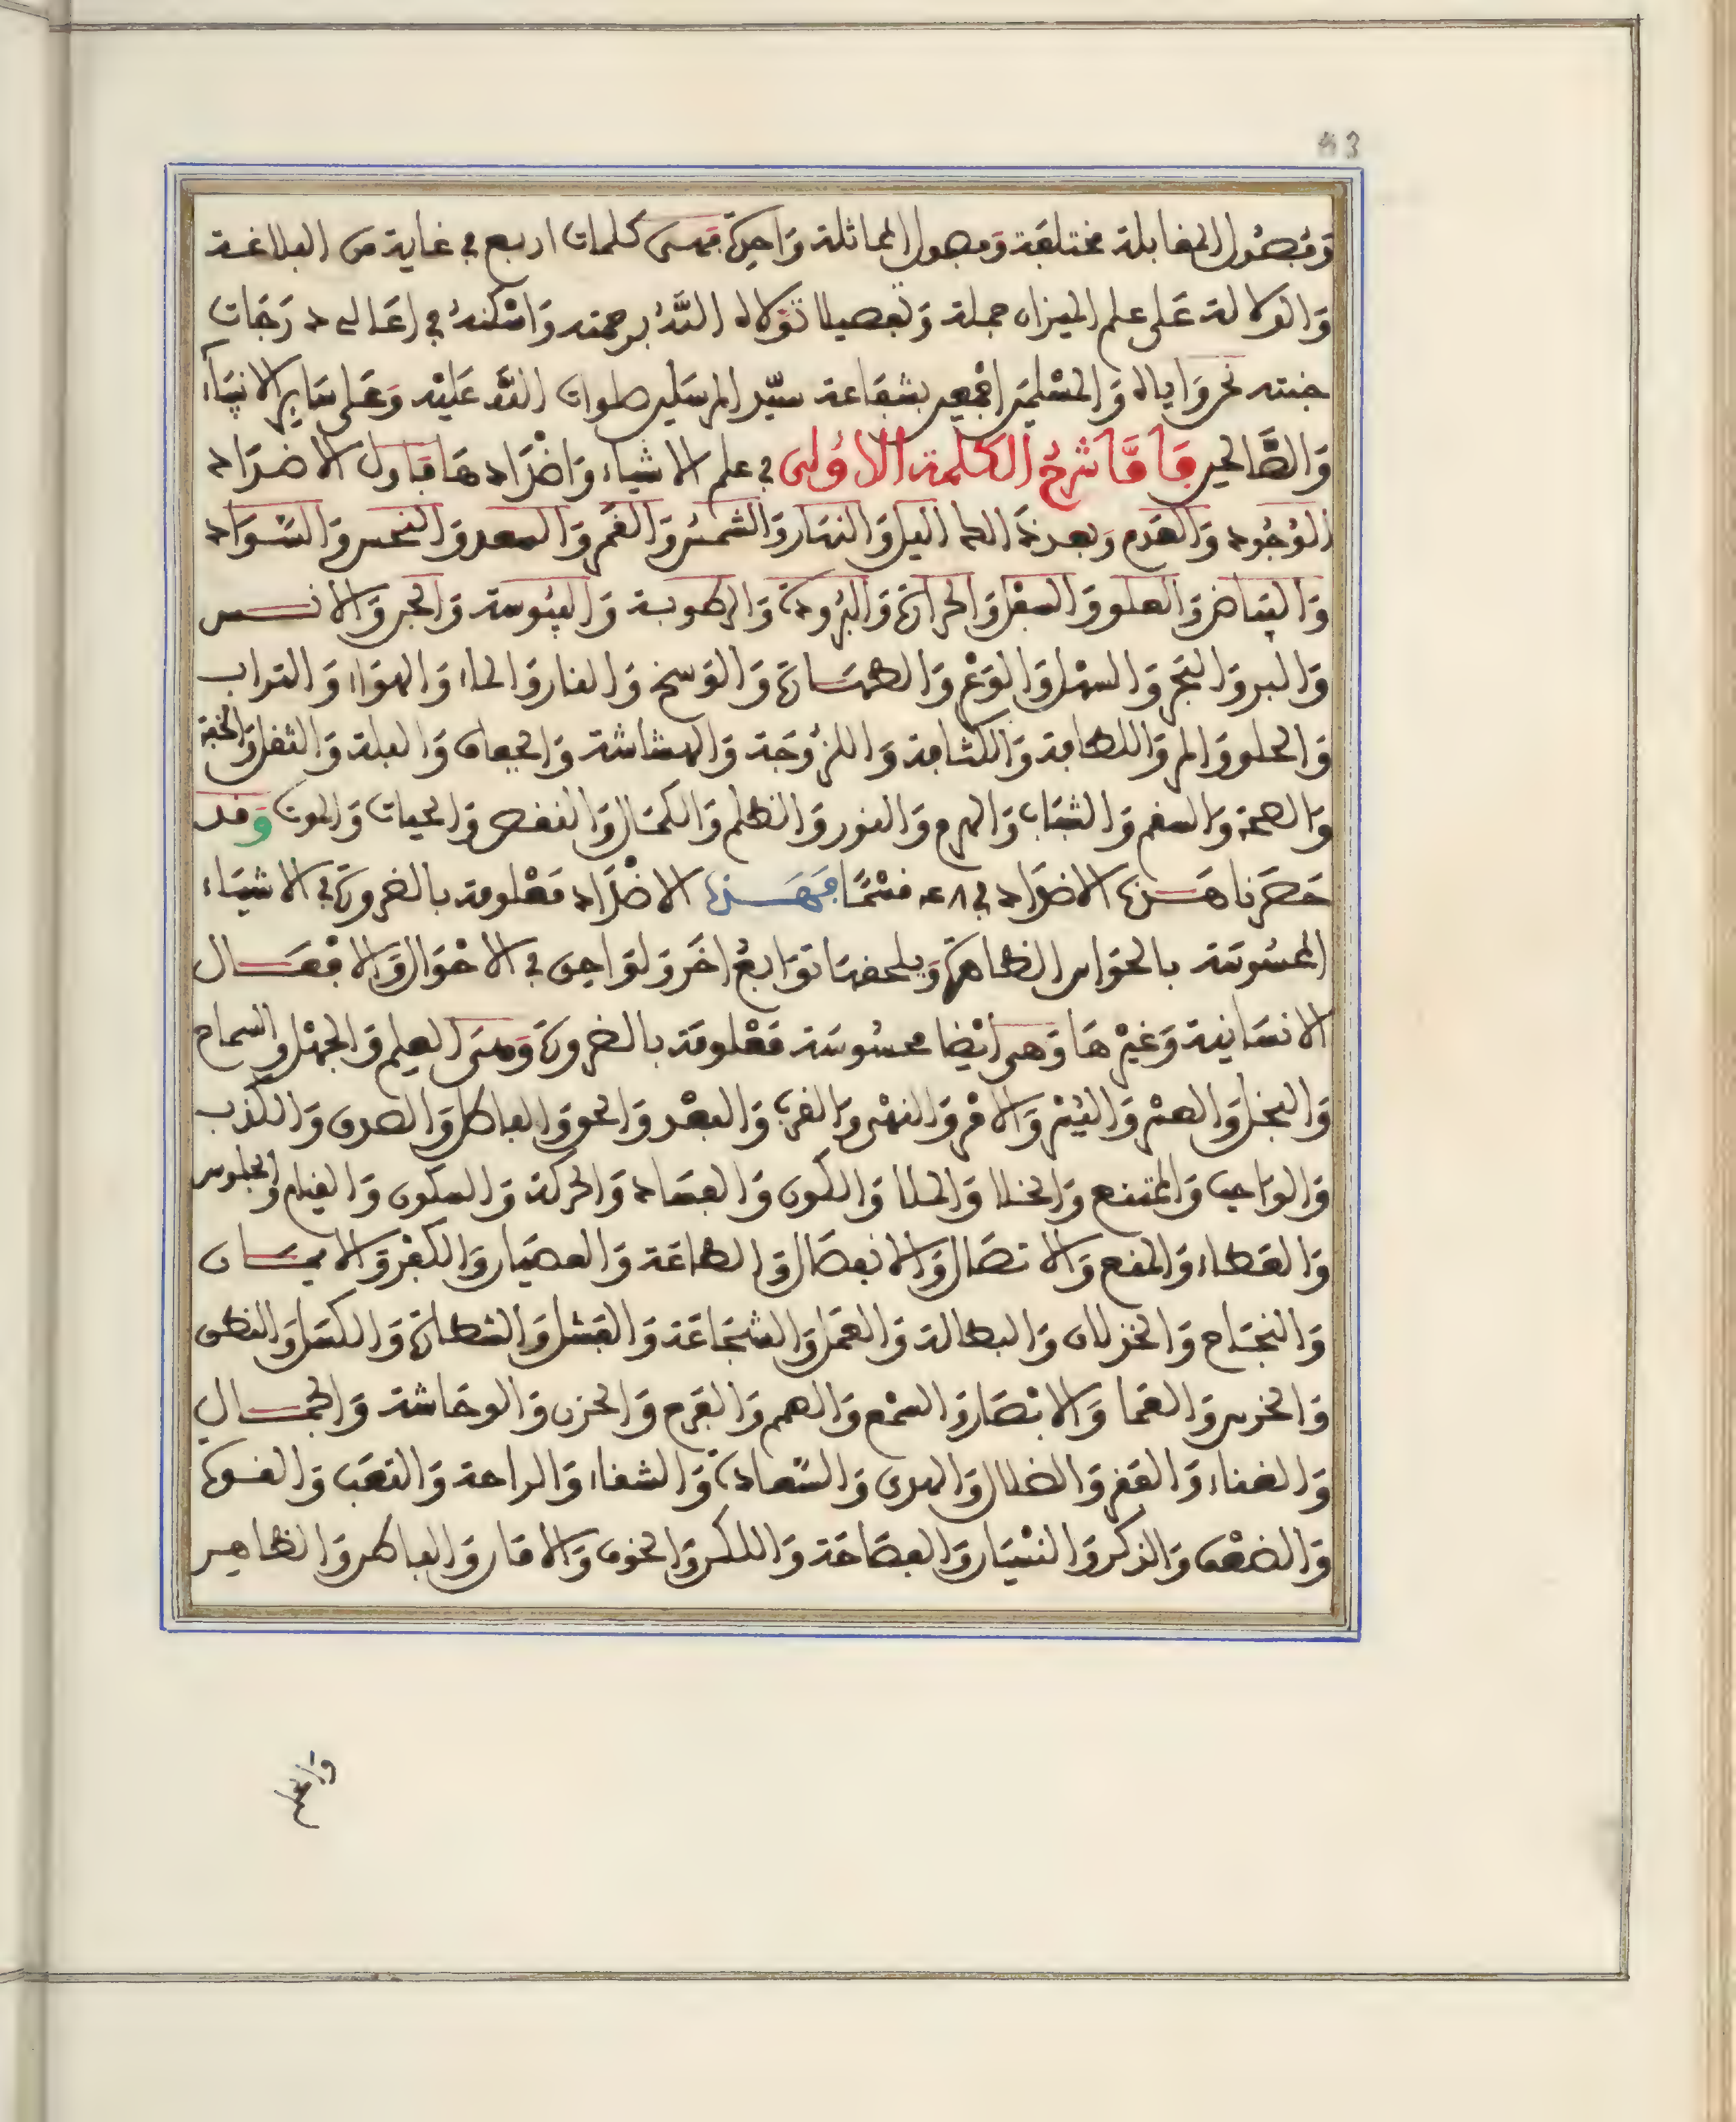 وفصول المقابلة مختلفة وفصول المماثلة واحدة فهى كلمات اربع في غاية من البلاغة
والدلالة على علم الميزان جملة وتفصيلا تولاه الله برحمته واسكنه في اعالى درجات
جنته نحن واياه والمسلمين اجمعين بشفاعة سيد المرسلين صلوات الله عليه وعلى ساير الانبياء
والصالحين فاما شرح الكلمة الاولى في علم الاشياء واضدادها فاول الاضداد
الوجود والعدم وبعد ذالك اليل والنهار والشمس والقمر والسعد والنحس والسواد
والبياض والعلو والسفل والحرارة والبرودة والرطوبة واليبوسة والجن والانس
والبر والبحر والسهل والوعر والطهارة والوسخ والنار والماء والهواء والتراب
والحلو والمر واللطافة والكثافة واللزوجة والهشاشة والجفاف والبلة والثقل والخفة
والصحة والسقم والشباب والهرم والنور والظلم والكمال والنقص والحيات والموت وقد
حصرنا هذه الاضداد في ٤٨ قسما فهذه الاضداد معلومة بالضرورة في الاشياء
المحسوسة بالحواس الظاهرة ويلحقها توابع اخر ولواحق في الاحوال والافعال
الانسانية وغيرها وهى ايضا محسوسة معلومة بالضرورة وهى العلم والجهل والسماح
والبخل والعسر واليسر والامر والنهى والقرب والبعد والحق والباطل والصدق والكذب
والواجب والممتنع والخلا والملا والكون والفساد والحركة والسكون والقيام والجلوس
والعطاء والمنع والاتصال والانفصال والطاعة والعصيان والكفر والايمان
والنجاح والخذلان والبطالة والعمل والشجاعة والفشل والشطارة والكسل والنطق
والخرس والعما والابصار والسمع والصمم والفرح والحزن والوحاشة والجمال
والغناء والفقر والضلال والهدى والسعادة والشقاء والراحة والتعب والقوة
والضعف والذكر والنسيان والفصاحة واللكن والخوف والامان والباطن والظاهر
واعلم